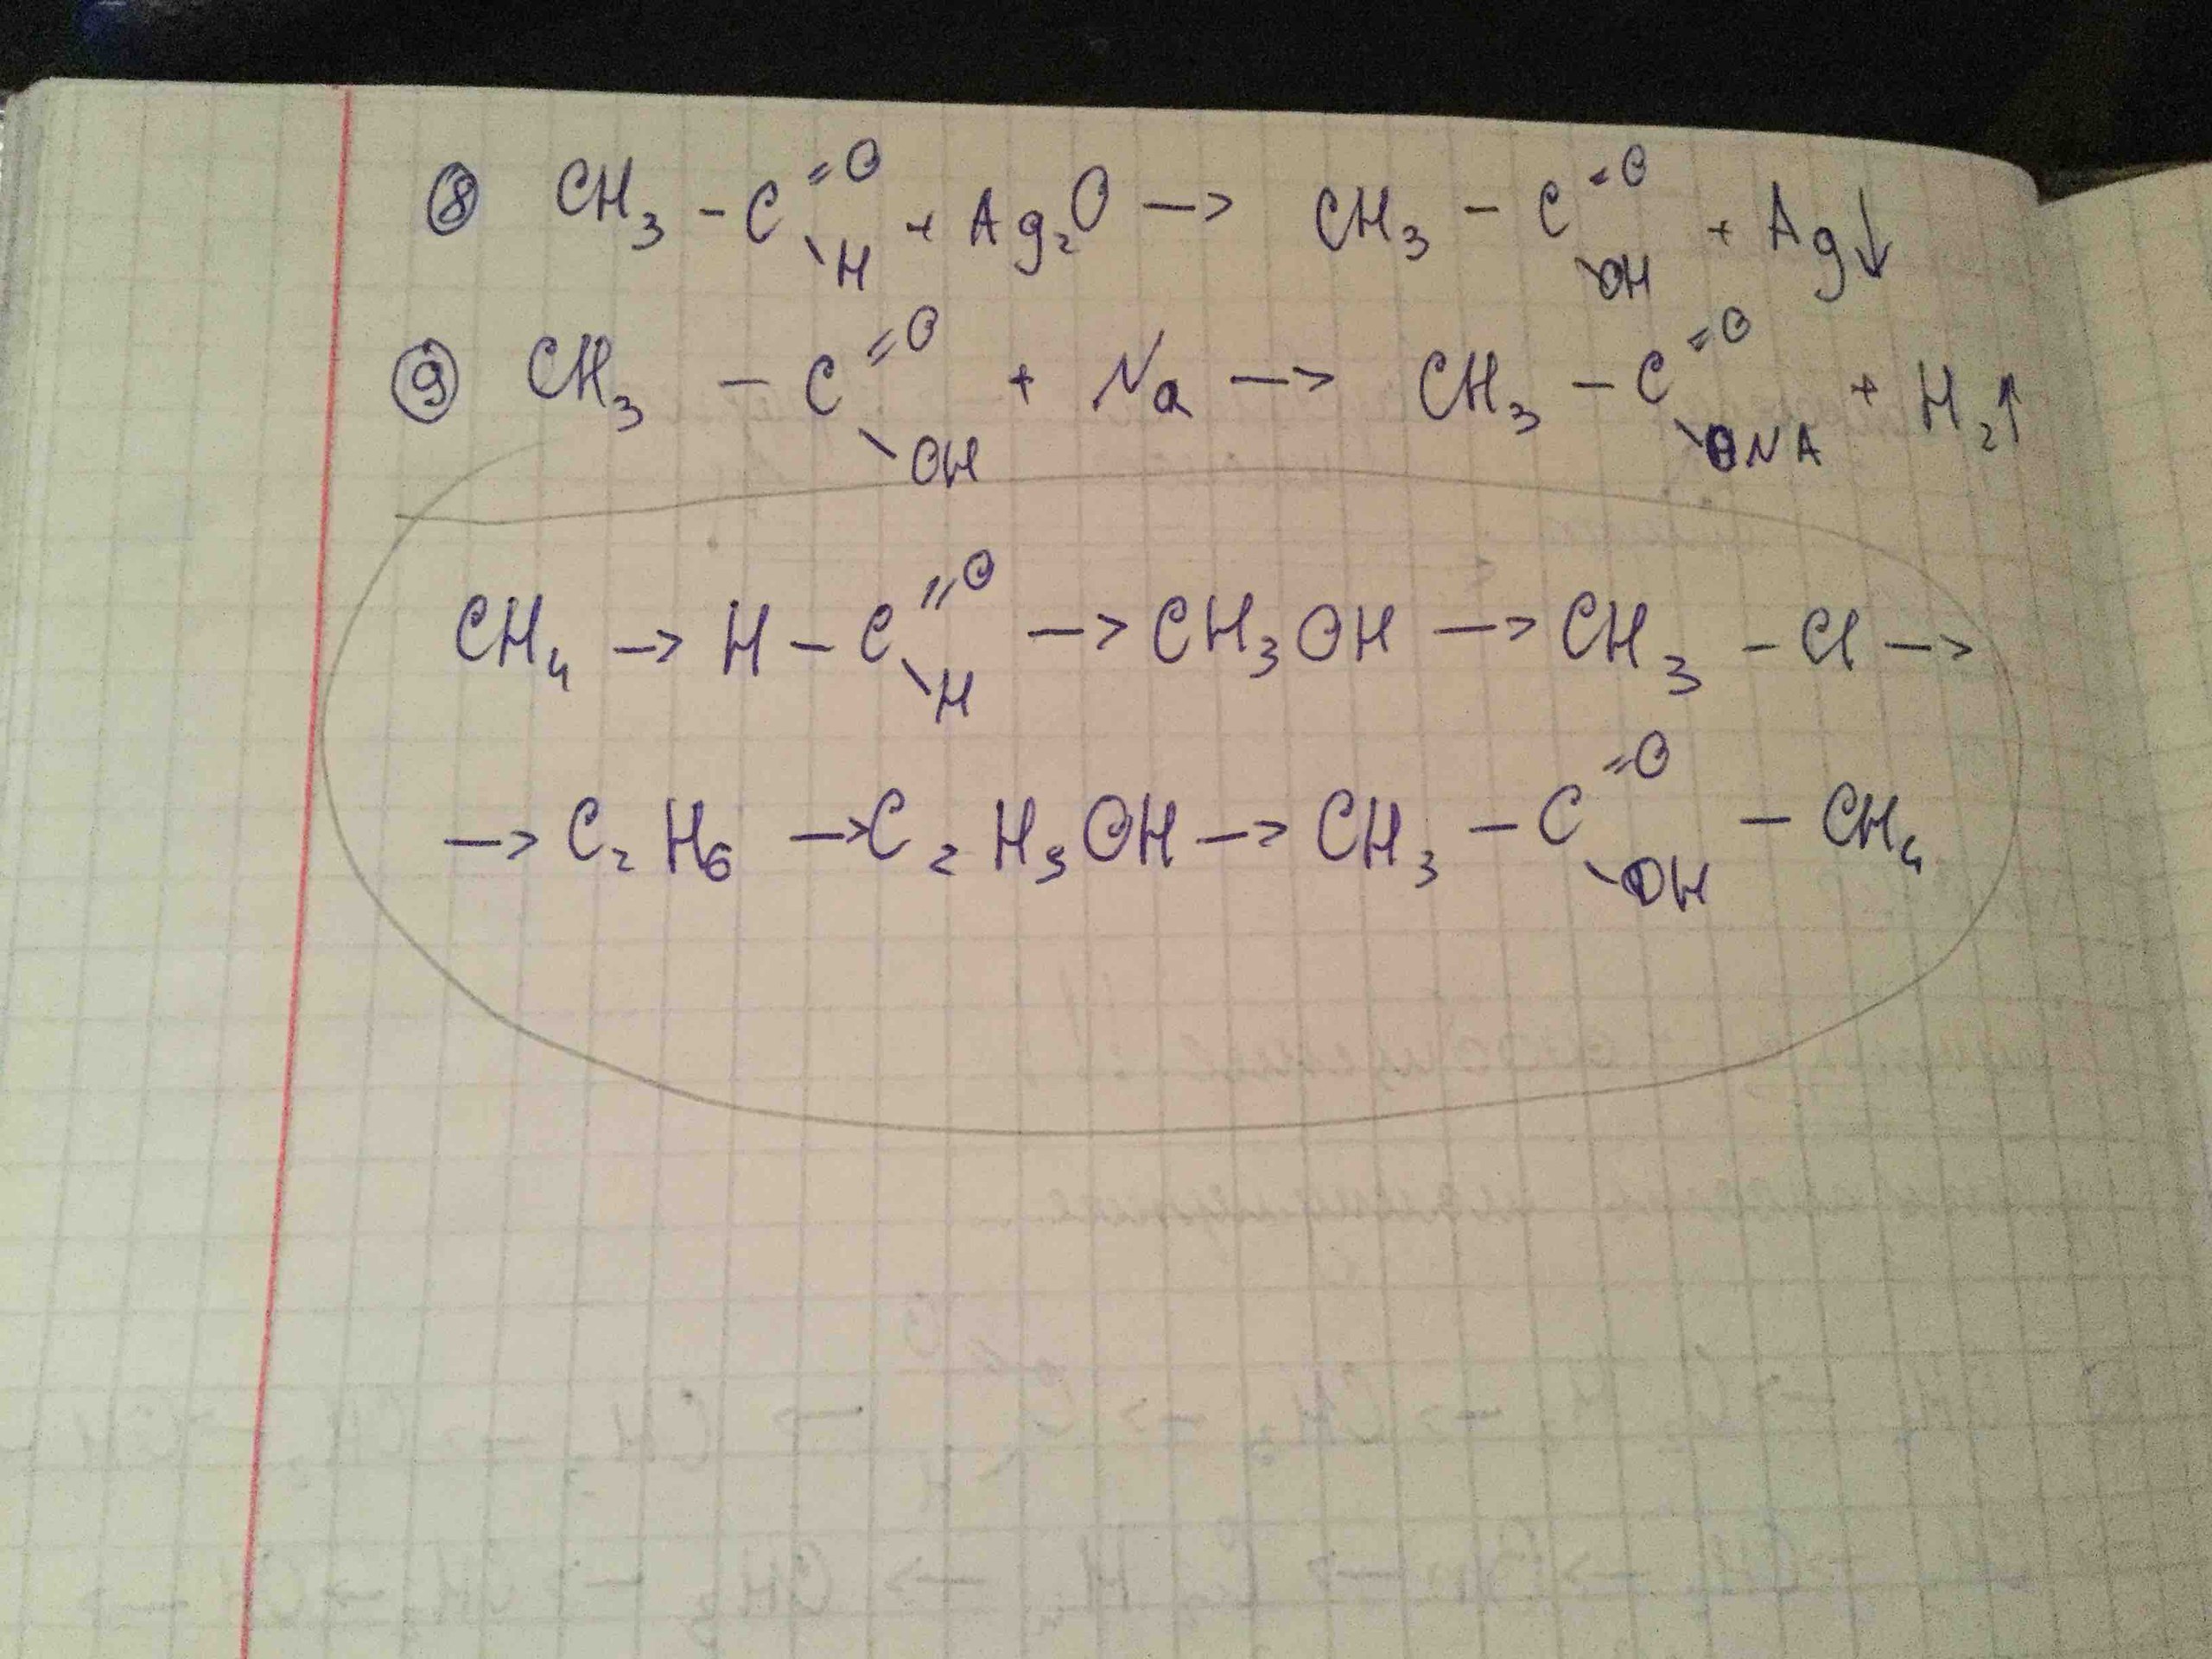 ⑧ CH₃ - C =O \H + Ag₂O -> CH₃ - C =O \OH + Ag↓
⑨ CH₃ - C =O \OH + Na -> CH₃ - C =O \ONA + H₂↑
CH₄ -> H - C =O \H -> CH₃OH -> CH₃ - Cl ->
-> C₂H₆ -> C₂H₅OH -> CH₃ - C =O \OH - CH₄